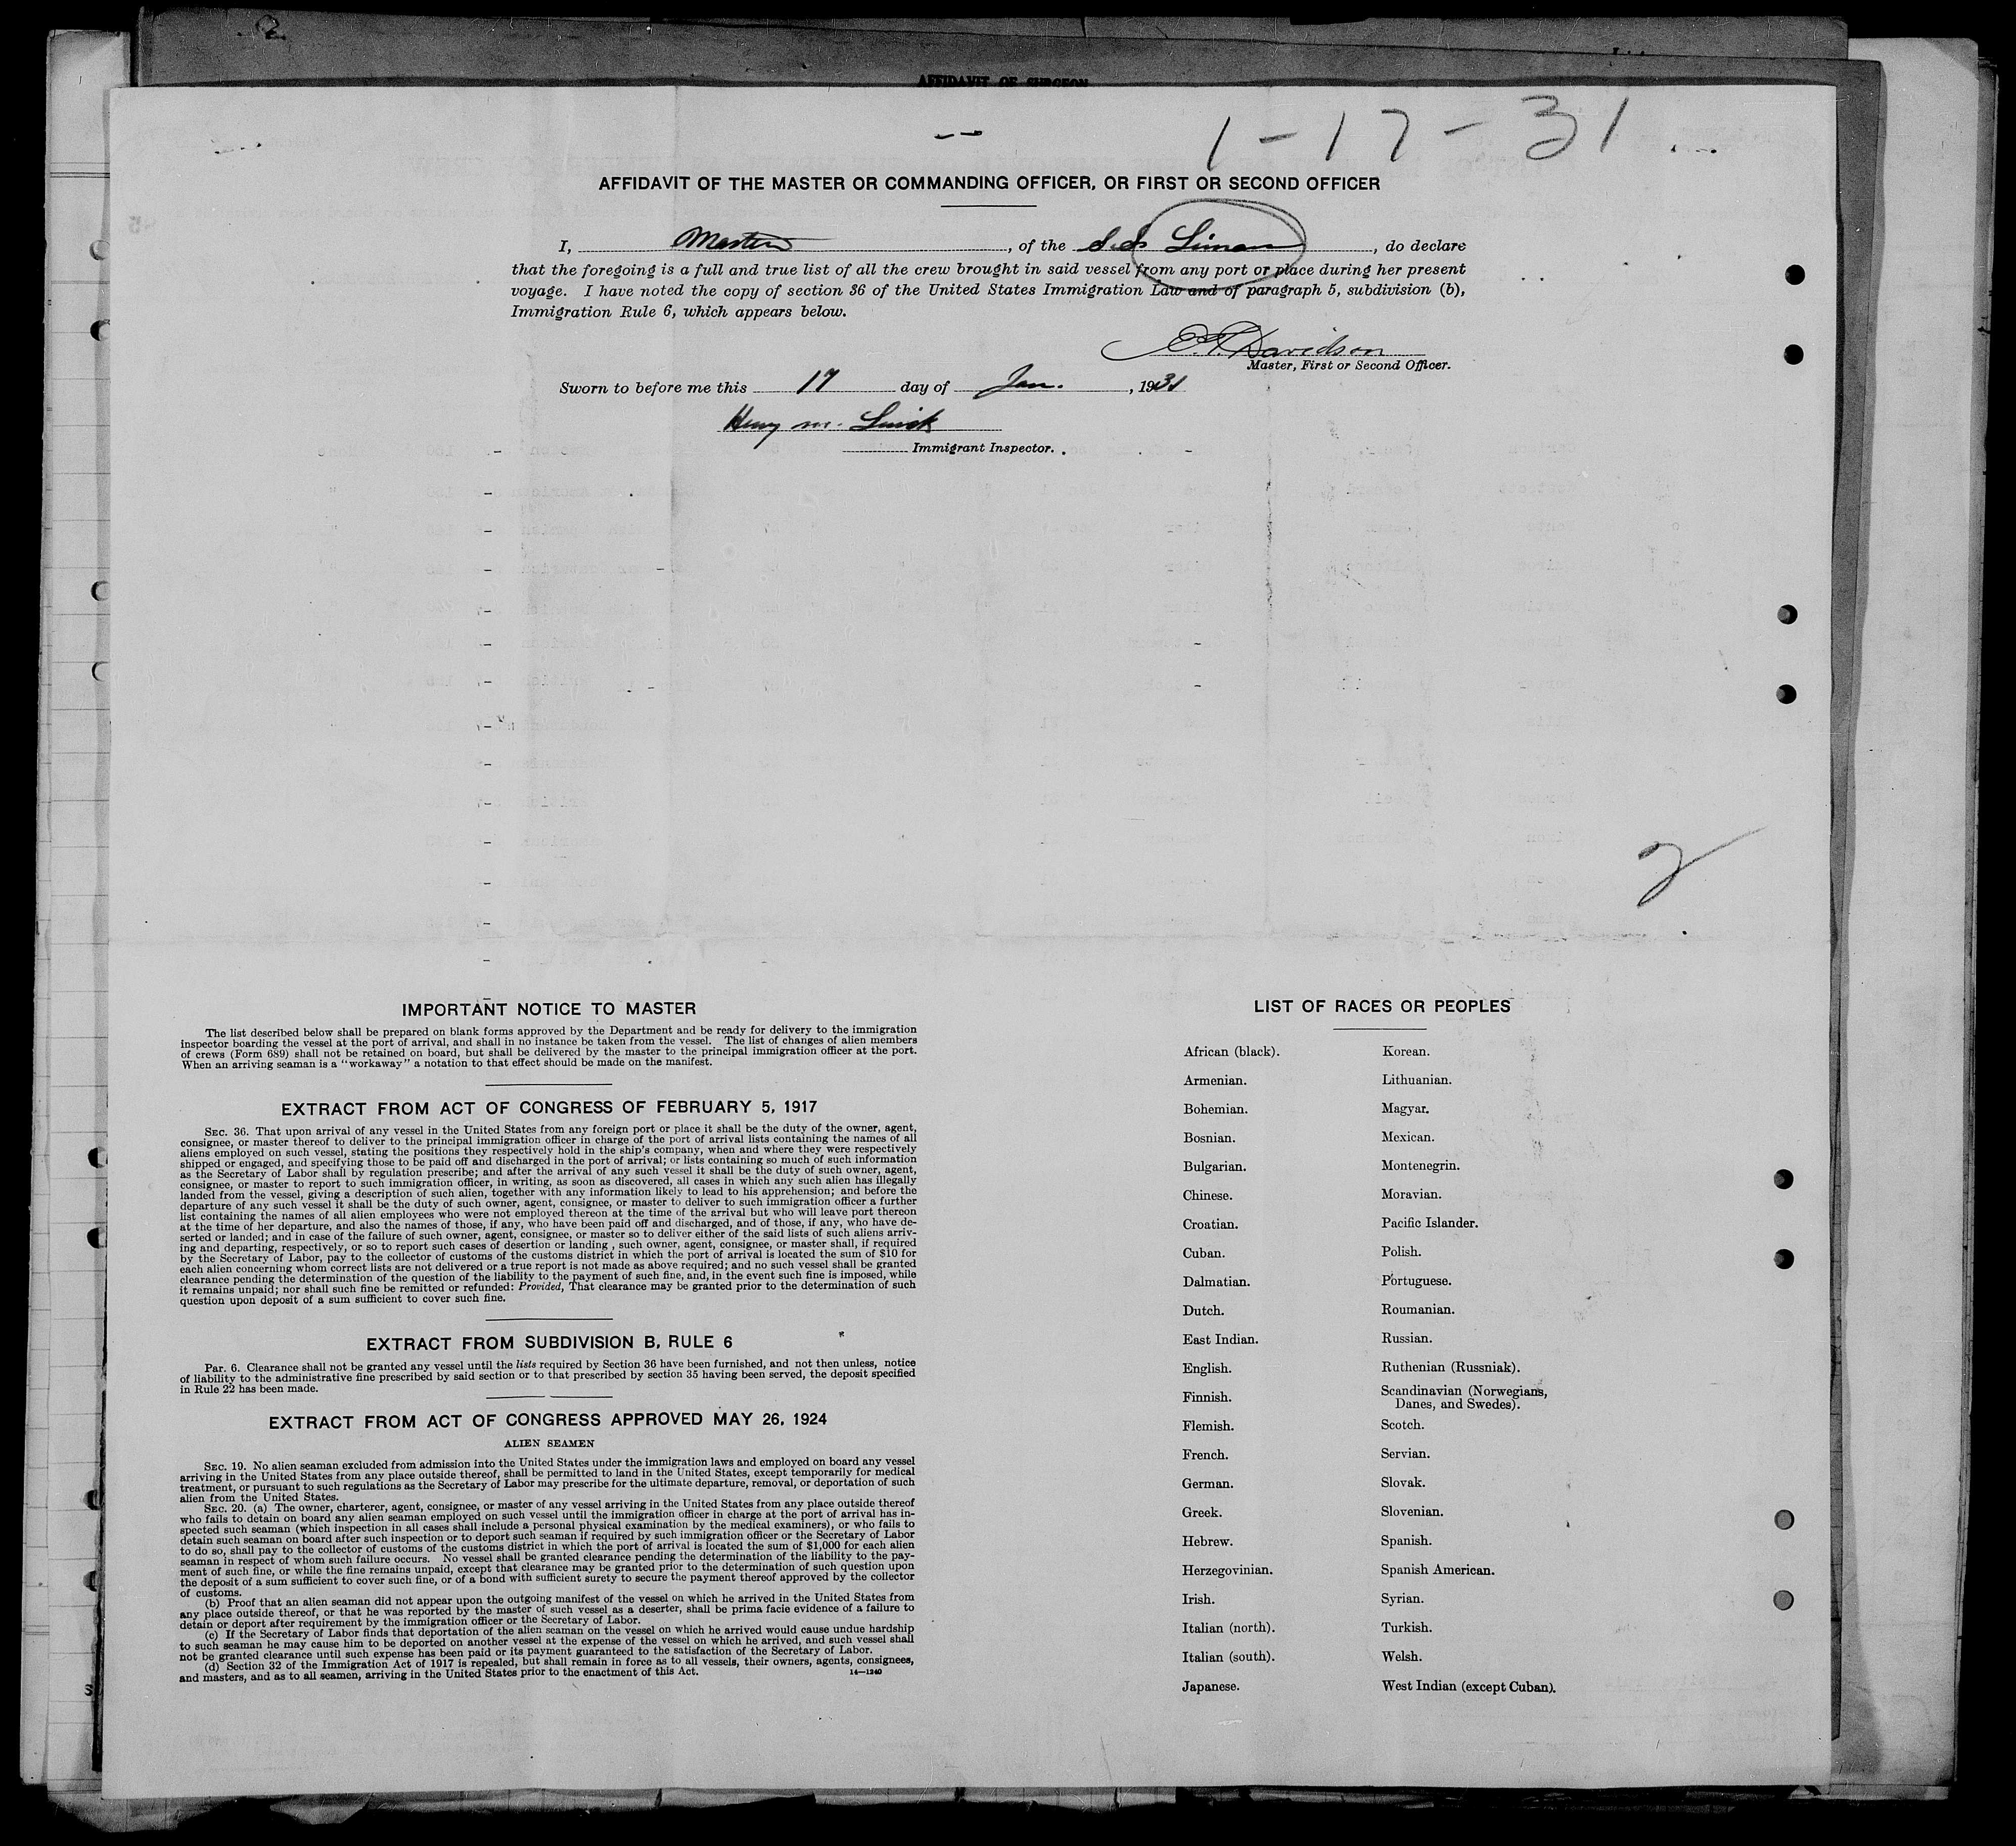 AFFIDAVIT OF SURGEON
1-17-31
AFFIDAVIT OF THE MASTER OR COMMANDING OFFICER, OR FIRST OR SECOND OFFICER
I, Master, of the S.S. Liman, do declare
that the foregoing is a full and true list of all the crew brought in said vessel from any port or place during her present
voyage. I have noted the copy of section 36 of the United States Immigration Law and of paragraph 5, subdivision (b),
Immigration Rule 6, which appears below.
Davidson
Master, First or Second Officer.
Sworn to before me this 17 day of Jan., 1931
Henry M.
Immigrant Inspector.
2
IMPORTANT NOTICE TO MASTER
The list described below shall be prepared on blank forms approved by the Department and be ready for delivery to the immigration
inspector boarding the vessel at the port of arrival, and shall in no instance be taken from the vessel. The list of changes of alien members
of crews (Form 689) shall not be retained on board, but shall be delivered by the master to the principal immigration officer at the port.
When an arriving seaman is a "workaway" a notation to that effect should be made on the manifest.
EXTRACT FROM ACT OF CONGRESS OF FEBRUARY 5, 1917
SEC. 36. That upon arrival of any vessel in the United States from any foreign port or place it shall be the duty of the owner, agent,
consignee, or master thereof to deliver to the principal immigration officer in charge of the port of arrival lists containing the names of all
aliens employed on such vessel, stating the positions they respectively hold in the ship's company, when and where they were respectively
shipped or engaged, and specifying those to be paid off and discharged in the port of arrival; or lists containing so much of such information
as the Secretary of Labor shall by regulation prescribe; and after the arrival of any such vessel it shall be the duty of such owner, agent,
consignee, or master to report to such immigration officer, in writing, as soon as discovered, all cases in which any such alien has illegally
landed from the vessel, giving a description of such alien, together with any information likely to lead to his apprehension; and before the
departure of any such vessel it shall be the duty of such owner, agent, consignee, or master to deliver to such immigration officer a further
list containing the names of all alien employees who were not employed thereon at the time of the arrival but who will leave port thereon
at the time of her departure, and also the names of those, if any, who have been paid off and discharged, and of those, if any, who have de-
serted or landed; and in case of the failure of such owner, agent, consignee, or master so to deliver either of the said lists of such aliens arriv-
ing and departing, respectively, or so to report such cases of desertion or landing, such owner, agent, consignee, or master shall, if required
by the Secretary of Labor, pay to the collector of customs of the customs district in which the port of arrival is located the sum of $10 for
each alien concerning whom correct lists are not delivered or a true report is not made as above required; and no such vessel shall be granted
clearance pending the determination of the question of the liability to the payment of such fine, and, in the event such fine is imposed, while
it remains unpaid; nor shall such fine be remitted or refunded: Provided, That clearance may be granted prior to the determination of such
question upon deposit of a sum sufficient to cover such fine.
EXTRACT FROM SUBDIVISION B, RULE 6
Par. 6. Clearance shall not be granted any vessel until the lists required by Section 36 have been furnished, and not then unless, notice
of liability to the administrative fine prescribed by said section or to that prescribed by section 35 having been served, the deposit specified
in Rule 22 has been made.
EXTRACT FROM ACT OF CONGRESS APPROVED MAY 26, 1924
ALIEN SEAMEN
SEC. 19. No alien seaman excluded from admission into the United States under the immigration laws and employed on board any vessel
arriving in the United States from any place outside thereof, shall be permitted to land in the United States, except temporarily for medical
treatment, or pursuant to such regulations as the Secretary of Labor may prescribe for the ultimate departure, removal, or deportation of such
alien from the United States.
SEC. 20. (a) The owner, charterer, agent, consignee, or master of any vessel arriving in the United States from any place outside thereof
who fails to detain on board any alien seaman employed on such vessel until the immigration officer in charge at the port of arrival has in-
spected such seaman (which inspection in all cases shall include a personal physical examination by the medical examiners), or who fails to
detain such seaman on board after such inspection or to deport such seaman if required by such immigration officer or the Secretary of Labor
to do so, shall pay to the collector of customs of the customs district in which the port of arrival is located the sum of $1,000 for each alien
seaman in respect of whom such failure occurs. No vessel shall be granted clearance pending the determination of the liability to the pay-
ment of such fine, or while the fine remains unpaid, except that clearance may be granted prior to the determination of such question upon
the deposit of a sum sufficient to cover such fine, or of a bond with sufficient surety to secure the payment thereof approved by the collector
of customs.
(b) Proof that an alien seaman did not appear upon the outgoing manifest of the vessel on which he arrived in the United States from
any place outside thereof, or that he was reported by the master of such vessel as a deserter, shall be prima facie evidence of a failure to
detain or deport after requirement by the immigration officer or the Secretary of Labor.
(c) If the Secretary of Labor finds that deportation of the alien seaman on the vessel on which he arrived would cause undue hardship
to such seaman he may cause him to be deported on another vessel at the expense of the vessel on which he arrived, and such vessel shall
not be granted clearance until such expense has been paid or its payment guaranteed to the satisfaction of the Secretary of Labor.
(d) Section 32 of the Immigration Act of 1917 is repealed, but shall remain in force as to all vessels, their owners, agents, consignees,
and masters, and as to all seamen, arriving in the United States prior to the enactment of this Act.
14—1240
LIST OF RACES OR PEOPLES
African (black).
Armenian.
Bohemian.
Bosnian.
Bulgarian.
Chinese.
Croatian.
Cuban.
Dalmatian.
Dutch.
East Indian.
English.
Finnish.
Flemish.
French.
German.
Greek.
Hebrew.
Herzegovinian.
Irish.
Italian (north).
Italian (south).
Japanese.
Korean.
Lithuanian.
Magyar.
Mexican.
Montenegrin.
Moravian.
Pacific Islander.
Polish.
Portuguese.
Roumanian.
Russian.
Ruthenian (Russniak).
Scandinavian (Norwegians,
Danes, and Swedes).
Scotch.
Servian.
Slovak.
Slovenian.
Spanish.
Spanish American.
Syrian.
Turkish.
Welsh.
West Indian (except Cuban).